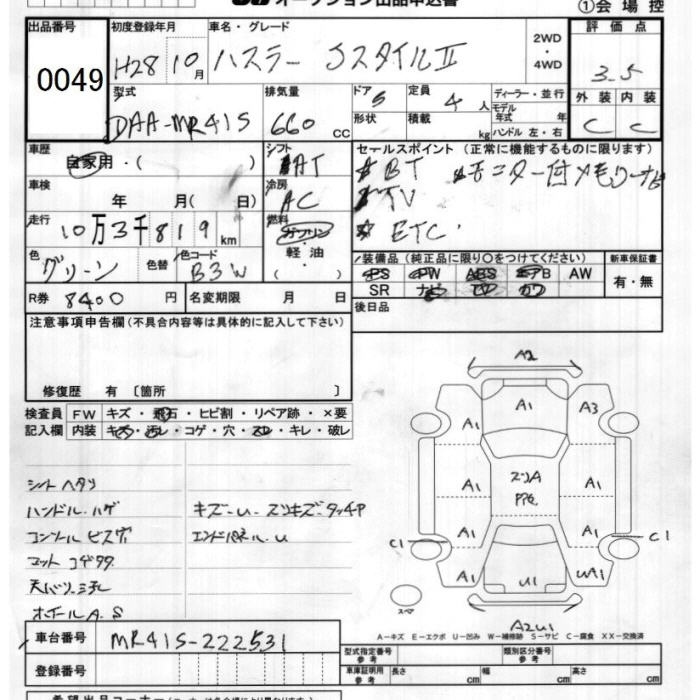 オークション出品申込書
①会場控
出品番号 0049
初度登録年月 H28 10月
車名・グレード ハスラー JスタイルⅡ
2WD・4WD
評価点 3.5
型式 DAA-MR41S
排気量 660 cc
ドア 5
定員 4人
ディーラー・並行
モデル年式 年
外装 内装
C C
形状
積載 kg
ハンドル 左・右
車歴 自家用・( )
シフト AT
セールスポイント (正常に機能するものに限ります)
BT モニター付メモリーナビ
TV
ETC
車検 年 月( 日)
冷房 AC
走行 10万3千819km
燃料 ガソリン・軽油・
色 グリーン
色替
色コード B3W
装備品 (純正品に限り○をつけてください)
新車保証書
PS PW ABS エアB AW
有・無
SR ナビ
R券 8400円
名変期限 月 日
後日品
注意事項申告欄(不具合内容等は具体的に記入して下さい)
修復歴 有〔箇所 〕
検査員 FW キズ・飛石・ヒビ割・リペア跡・×要
記入欄 内装 キズ・汚レ・コゲ・穴・スレ・キレ・破レ
シートヘタリ
ハンドル.ハゲ キズ-U-スリキズ-タッチP
コンソールビス穴 エンドパネル.U
マットコゲ
天バリ
ホイールA.S
A2
A1 A3
A1 A1
A1 スリA A1
PPC
C1 A1 A1 C1
A1 U1 WA1
スペア
A2U1
A-キズ E-エクボ U-凹み W-補修跡 S-サビ C-腐食 XX-交換済
車台番号 MR41S-222531
登録番号
型式指定番号 参考
類別区分番号 参考
車庫証明用 参考 長さ cm 幅 cm 高さ cm